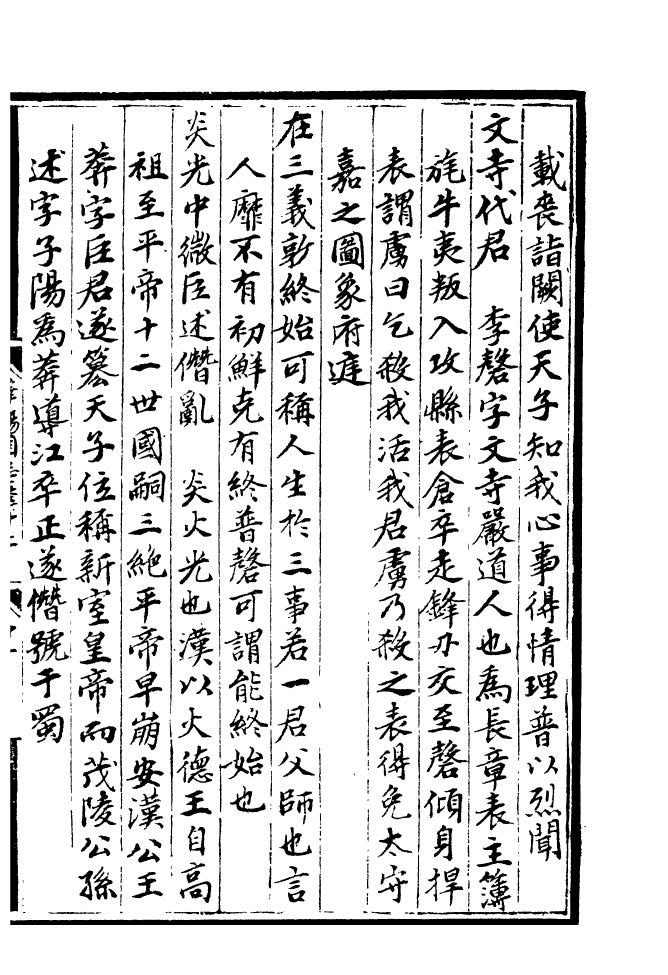 載喪詣闕使天子知我心事得情理普以烈聞
文寺代君　李磬字文寺嚴道人也為長章表主簿
旄牛夷叛入攻縣表倉卒走鋒刃交至磬傾身捍
表謂虜曰乞殺我活我君虜乃殺之表得免太守
嘉之圖象府庭
在三義敦終始可稱人生於三事若一君父師也言
人靡不有初鮮克有終普磬可謂能終始也
炎光中微臣述僭亂　炎火光也漢以火德王自高
祖至平帝十二世國嗣三絶平帝早崩安漢公王
莽字臣君遂簒天子位稱新室皇帝而茂陵公孫
述字子陽為莽導江卒正遂僭號于蜀